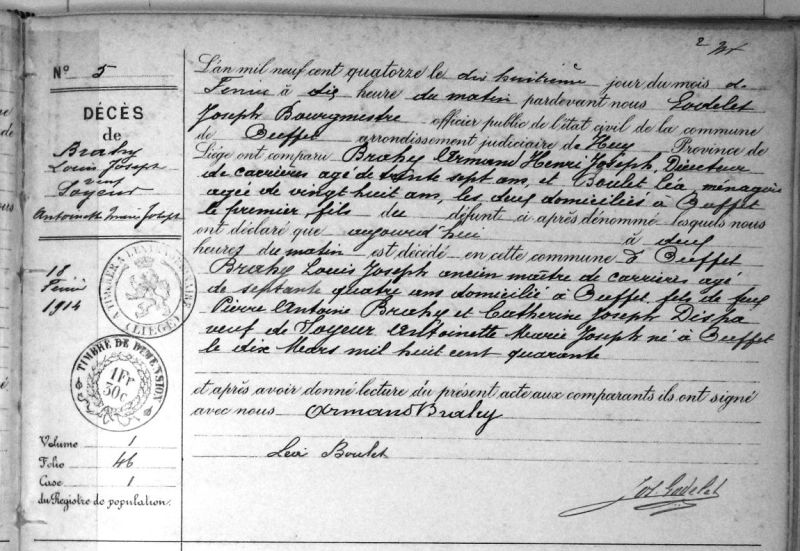 2
N° 5
DÉCÈS
de
Brahy
Louis Joseph
veuf
Loyeur
Antoinette Marie Joseph
18
Février
1914
TIMBRE DE DIMENSION
1 Fr
50c
(LIEGE)
Volume 1
Folio 46
Case 1
du Registre de population.
L'an mil neuf cent quatorze le dix huitième jour du mois d
Fevrier à dix heure du matin pardevant nous Godelet
Joseph Bourgmestre officier public de l'état civil de la commune
de Beffet arrondissement judiciaire de Huy Province de
Liége ont comparu Brahy Armand Henri Joseph, Directeur
de carrières agé de trente sept ans, et Boulet Léa, ménagère
agée de vingt huit ans, les deux domiciliés à Beffet
le premier, fils du défunt ci après dénommé lesquels nous
ont déclaré que aujourd'hui à deux
heures du matin est décédé en cette commune d Beffet
Brahy Louis Joseph ancien maître de carrières agé
de septante quatre ans domicilié à Beffet, fils de feux
Pierre Antoine Brahy et Catherine Joseph Dispa
veuf de Loyeur Antoinette Marie Joseph né à Beffet
le dix Mars mil huit cent quarante
et après avoir donné lecture du présent acte aux comparants ils ont signé
avec nous Armand Brahy
Léa Boulet
Jos. Godelet